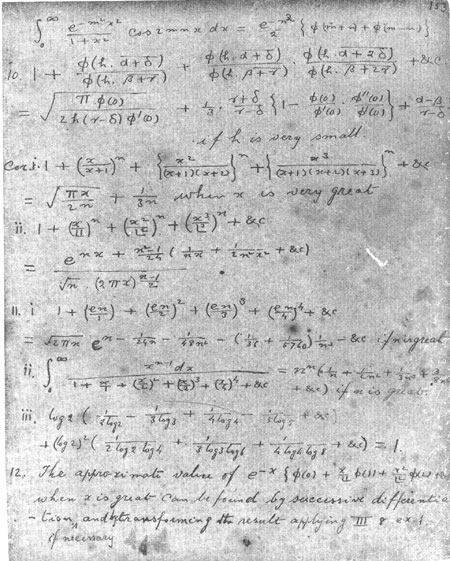 153
∫_0^∞ e^{-m²x²}/(1+x²) cos 2mnx dx = e^{-n²}/2 {φ(m+n) + φ(m-n)}
10. 1 + φ(h.α+δ)/φ(h.β+r) + φ(h.α+δ)/φ(h.β+r) · φ(h.α+2δ)/φ(h.β+2r) + &c
= √(π φ(0)/(2h(r-δ)φ'(0))) + 1/3 · (r+δ)/(r-δ) {1 - φ(0)/φ'(0) · φ''(0)/φ'(0)} + (α-β)/(r-δ)
if h is very small
Cor. i. 1 + (x/(x+1))^n + {x²/((x+1)(x+2))}^n + {x³/((x+1)(x+2)(x+3))}^n + &c
= √(πx/2n) + 1/3n when x is very great
ii. 1 + (x/|1)^n + (x²/|2)^n + (x³/|3)^n + &c
= e^{nx + (n²-1)/24 (1/nx + 1/2n²x² + &c)} / (√n (2πx)^{(n-1)/2})
11. i 1 + (en/1) + (en/2)² + (en/3)³ + (en/4)⁴ + &c
= √(2πn) e^{n - 1/24n - 1/48n² - (1/36 + 1/5760) 1/n³ - &c} if n is great
ii. ∫_0^∞ x^{n-1} dx / (1 + x/1 + (x/2)² + (x/3)³ + (x/4)⁴ + &c)
+ &c) if n is great.
iii. log 2 (1/2 log 2 - 1/3 log 3 + 1/4 log 4 - 1/5 log 5 + &c)
+ (log 2)² (1/2 log 2 log 4 + 1/3 log 3 log 6 + 1/4 log 4 log 8 + &c) = 1.
12. The approximate value of e^{-x} {φ(0) + x/|1 φ(1) + x²/|2 φ(2) + &c
when x is great can be found by successive differentia
-tion, and by transforming the result applying III 8 ex-1
if necessary